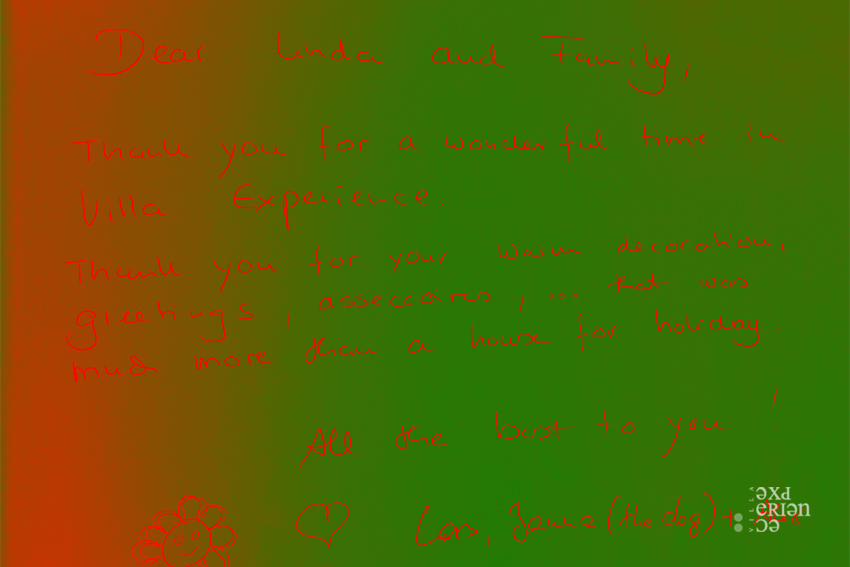 Dear Linda and Family,
Thank you for a wonderful time in
Villa Experience.
Thank you for your warm decoration,
greetings, asseccoires, ... that was
much more than a house for holiday.
All the best to you!
(the dog) +
VILLA
EXPERIENCE